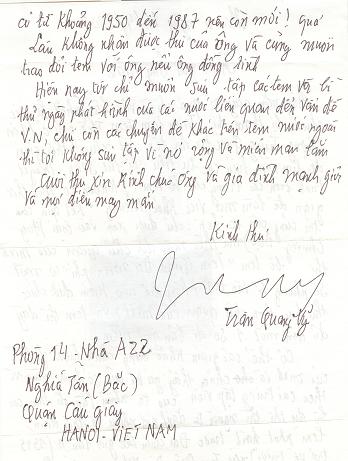 cũ từ khoảng 1950 đến 1987 nên còn mới! quá
lâu không nhận được thư của ông và cũng muốn
trao đổi tem với ông nếu ông đồng tình
Hiện nay tôi chỉ muốn sưu tập các tem và bì
thư ngày phát hành của các nước liên quan đến vấn đề
V.N, chứ còn các chuyên đề khác trên tem nước ngoài
thì tôi không sưu tập vì nó rộng và miên man lắm
Cuối thư xin kính chúc ông và gia đình mạnh giỏi
và mọi điều may mắn
Kính thư
Trần Quang Vỵ
Phòng 14 - Nhà A22
Nghĩa Tân (Bắc)
Quận Cầu giấy
HANOI - VIET NAM